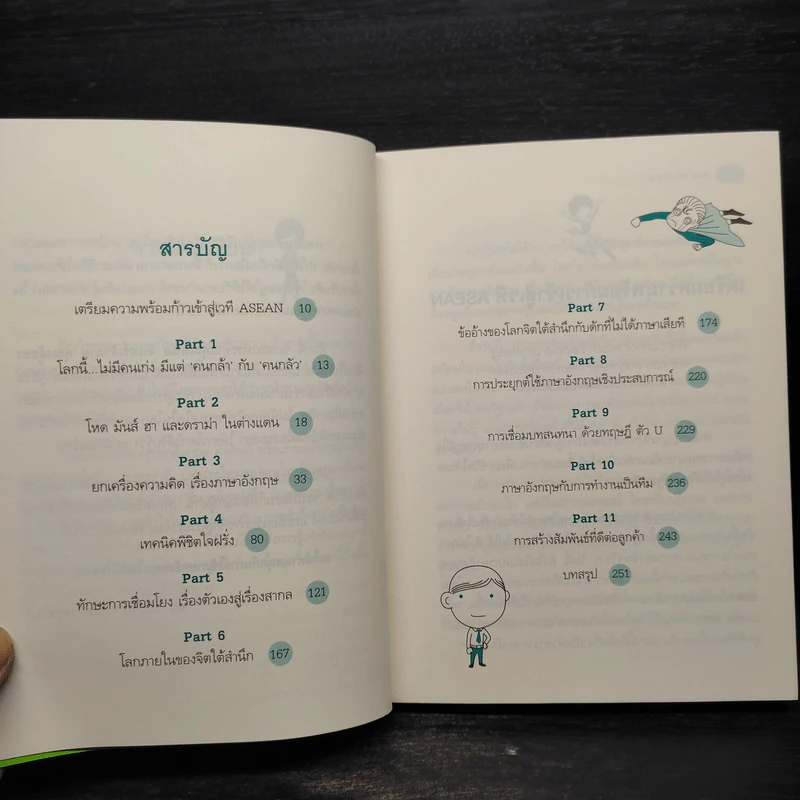 สารบัญ
เตรียมความพร้อมก้าวเข้าสู่เวที ASEAN 10
Part 1
โลกนี้...ไม่มีคนเก่ง มีแต่ 'คนกล้า' กับ 'คนกลัว' 13
Part 2
โหด มันส์ ฮา และดราม่า ในต่างแดน 18
Part 3
ยกเครื่องความคิด เรื่องภาษาอังกฤษ 33
Part 4
เทคนิคพิชิตใจฝรั่ง 80
Part 5
ทักษะการเชื่อมโยง เรื่องตัวเองสู่เรื่องสากล 121
Part 6
โลกภายในของจิตใต้สำนึก 167
Part 7
ข้ออ้างของโลกจิตใต้สำนึกกับดักที่ไม่ได้ภาษาเสียที 174
Part 8
การประยุกต์ใช้ภาษาอังกฤษเชิงประสบการณ์ 220
Part 9
การเชื่อมบทสนทนา ด้วยทฤษฎี ตัว U 229
Part 10
ภาษาอังกฤษกับการทำงานเป็นทีม 236
Part 11
การสร้างสัมพันธ์ที่ดีต่อลูกค้า 243
บทสรุป 251